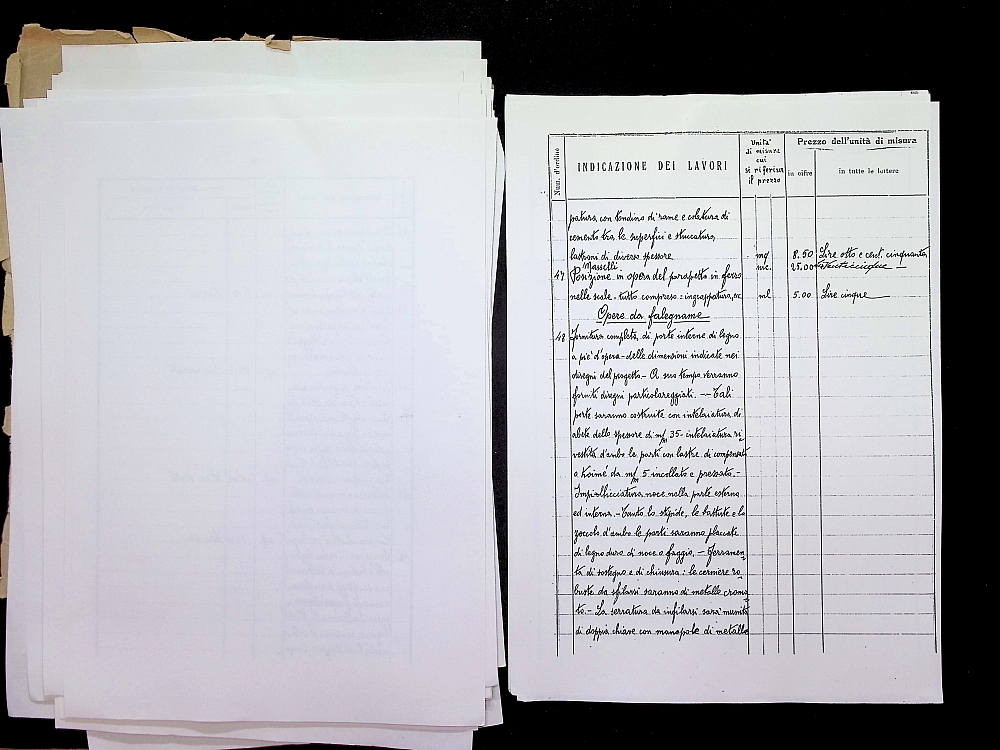 Num. d'ordine
INDICAZIONE DEI LAVORI
Unita' di misura cui si riferisce il prezzo
Prezzo dell'unità di misura
in cifre
in tutte le lettere
patura con tondino di rame e colatura di
cemento tra le superfici e stuccatura,
lastroni di diverso spessore mq 8.50 Lire otto e cent. cinquanta
Masselli. mc. 25.00 Venticinque
47 Posizione in opera del parapetto in ferro
nelle scale - tutto compreso: ingrappatura, ec ml 5.00 Lire cinque
Opere da falegname
48 Fornitura completa, di porte interne di legno
a pie' d'opera - delle dimensioni indicate nei
disegni del progetto. - A suo tempo verranno
forniti disegni particolareggiati. - Tali
porte saranno costruite con intelaiatura di
abete dello spessore di m/m 35 - intelaiatura ri-
vestita d'ambo le parti con lastre di compensato
a da m/m 5 incollato e pressato. -
Impiallicciatura noce nella parte esterna
ed interna. - Tanto lo stipide, le battute e lo
zoccolo d'ambo le parti saranno placcate
di legno duro di noce o faggio. - Ferramen-
ta di sostegno e di chiusura: le cerniere ro-
buste da sfilarsi saranno di metallo croma-
to. - La serratura da infilarsi sara' munita
di doppia chiave con manopole di metallo